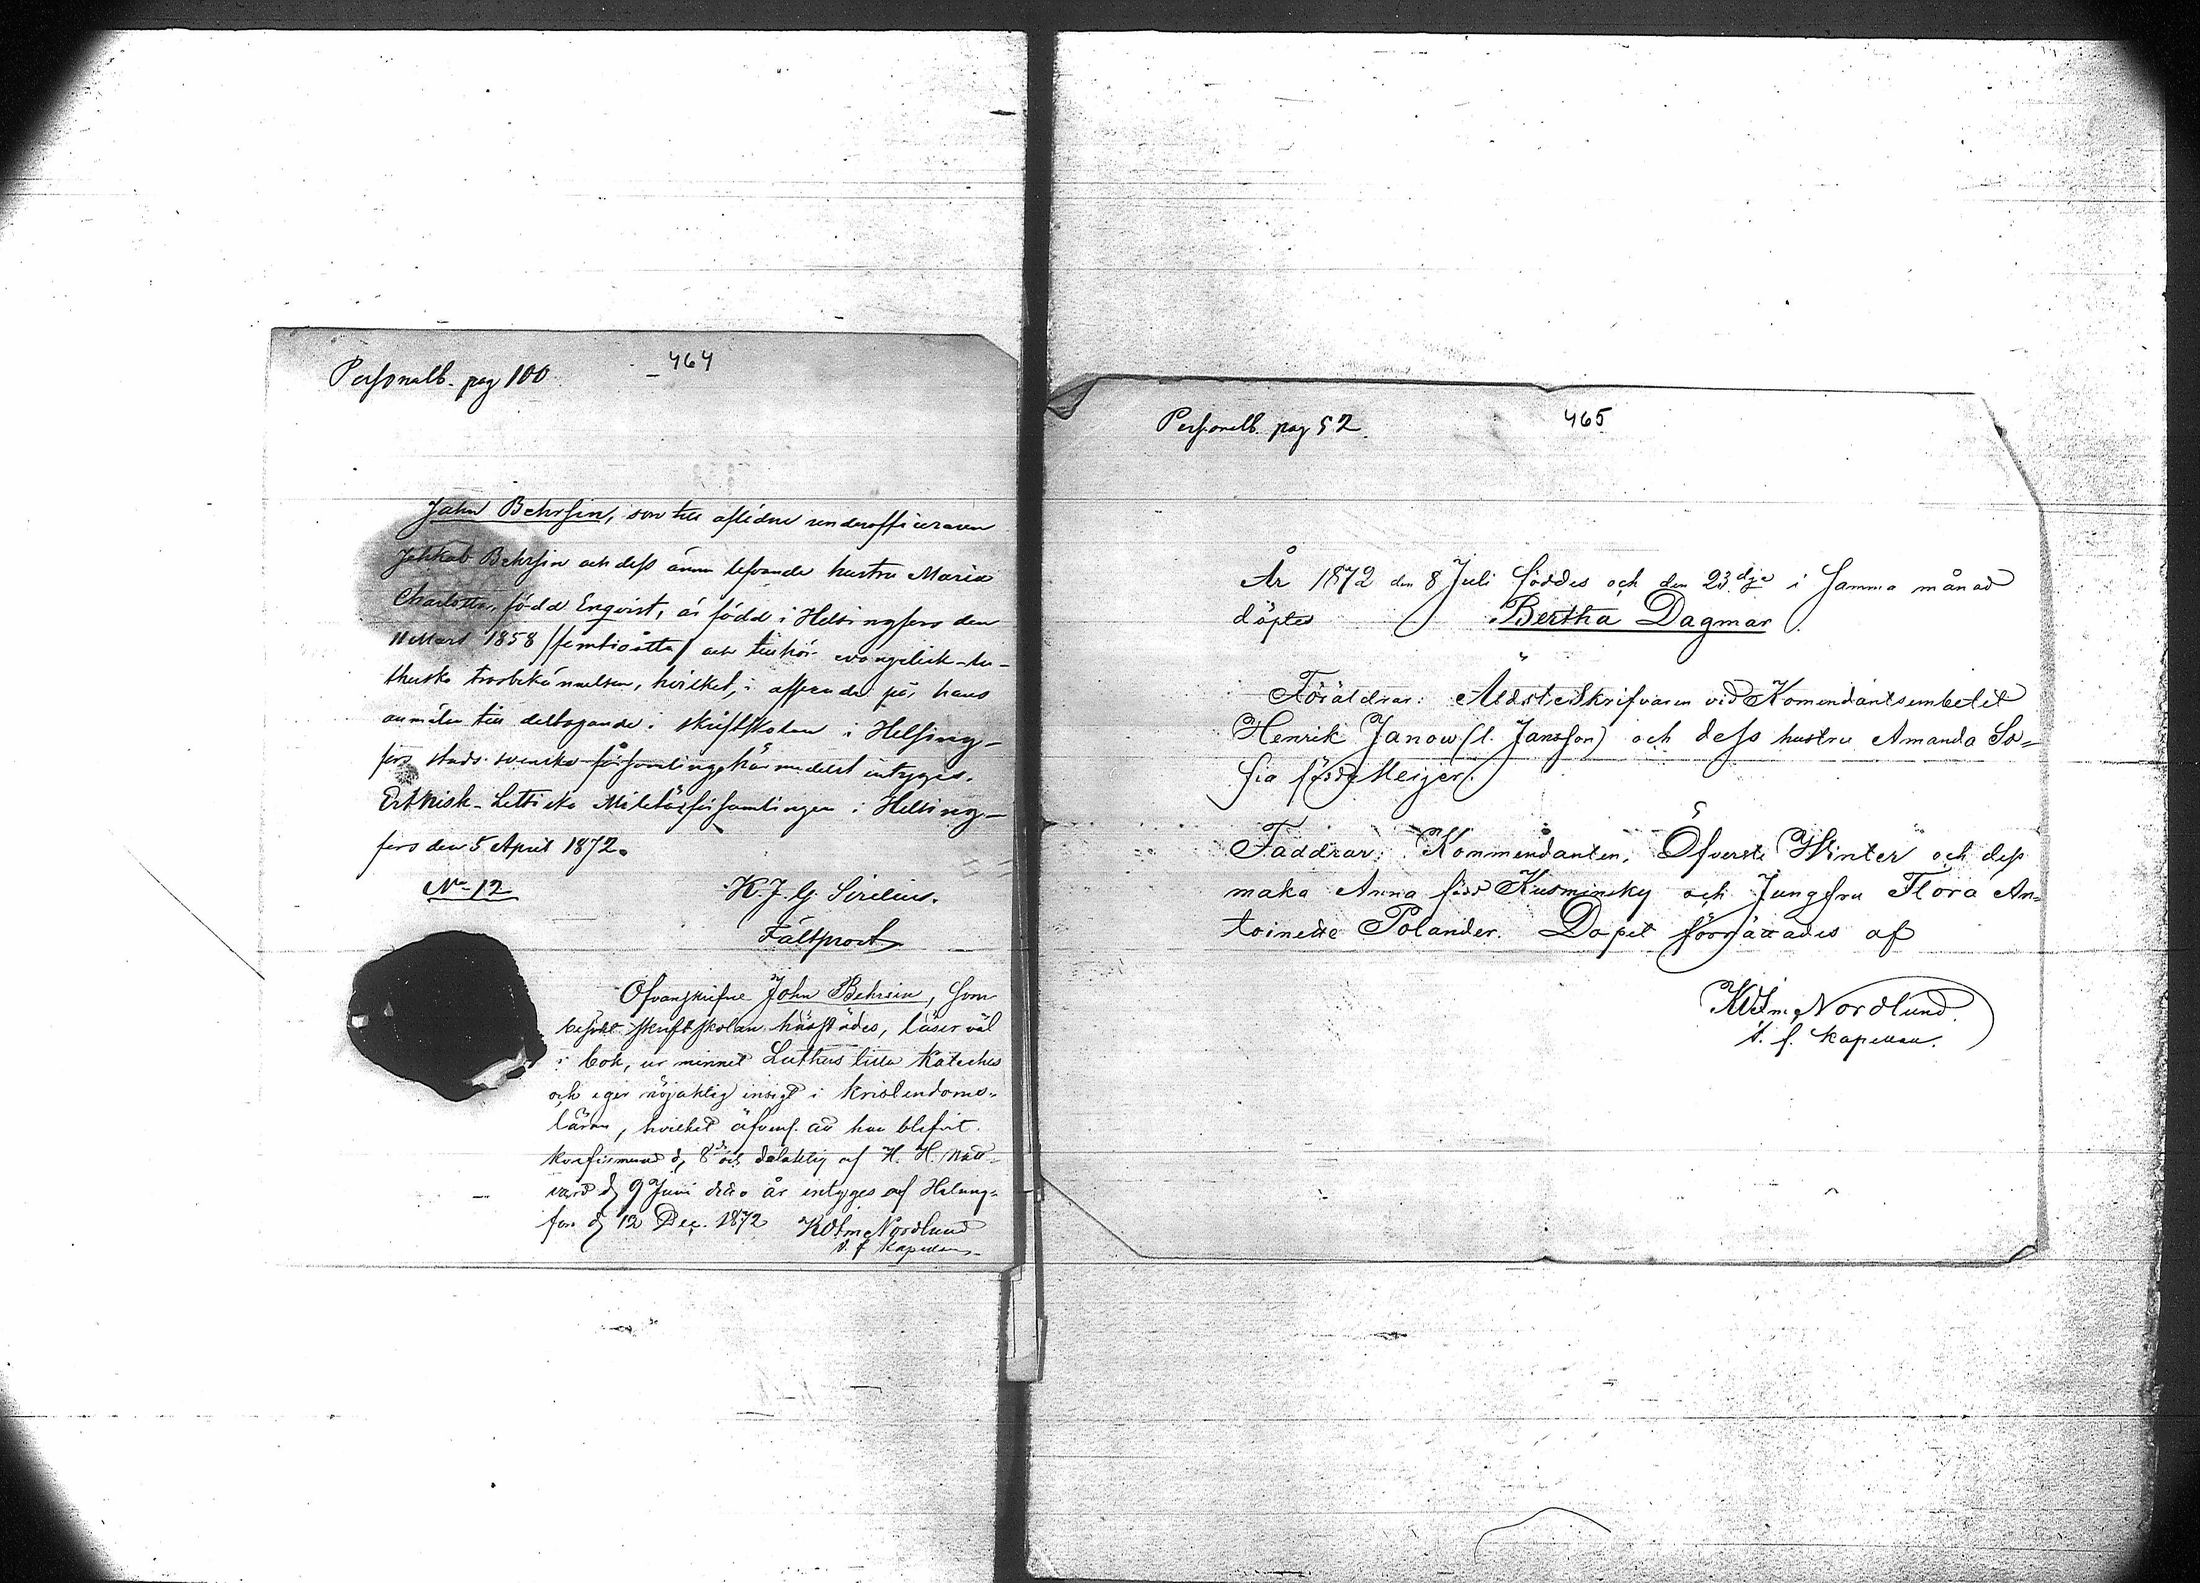 Personalb. pag 100
464
John Behrsin, son till aflidne underofficeraren
Jehkab Behrsin och dess ännu lefvande hustru Maria
Charlotta, född Enqvist, är född i Helsingfors den
11 Mars 1858 /femtioåtta/ och tillhör evangelisk-lu-
therska trosbekännelsen, hvilket, i afseende på hans
anmälan till deltagande i skriftskolan i Helsing-
fors stads svenska församling härmedelst intygas.
Esthnisk-Lettiska Militärförsamlingen i Helsing-
fors den 5 April 1872.
No 12
K. J. G. Sirelius.
Fältprost
Ofvanskrifne John Behrsin, som
besökt skriftskolan härstädes, läser väl
i bok, ur minnet Luthers lilla Kateches
och eger nöjaktig insigt i kristendoms-
läran, hvilket äfvensom att han blifvit
konfirmerad d. 8 och delaktig af H. H. Natt-
vard d. 9 Juni detta år intygas af Helsing-
fors d. 12 Dec. 1872 Nordlund
v. f. kapellan
Personalb. pag 52.
465
År 1872 den 8 Juli föddes och den 23dje i samma månad
döptes Bertha Dagmar.
Föräldrar: ÄldsteSkrifvaren vid Komendantsembetet
Henrik Janow (l. Jansson) och dess hustru Amanda So=
fia född Meijer.
Faddrar: Kommendanten, Öfverste Winter och dess
maka Anna född Kusminsky och Jungfru Flora An=
toinette Polander. Dopet förrättades af
Nordlund.
v. f. kapellan.